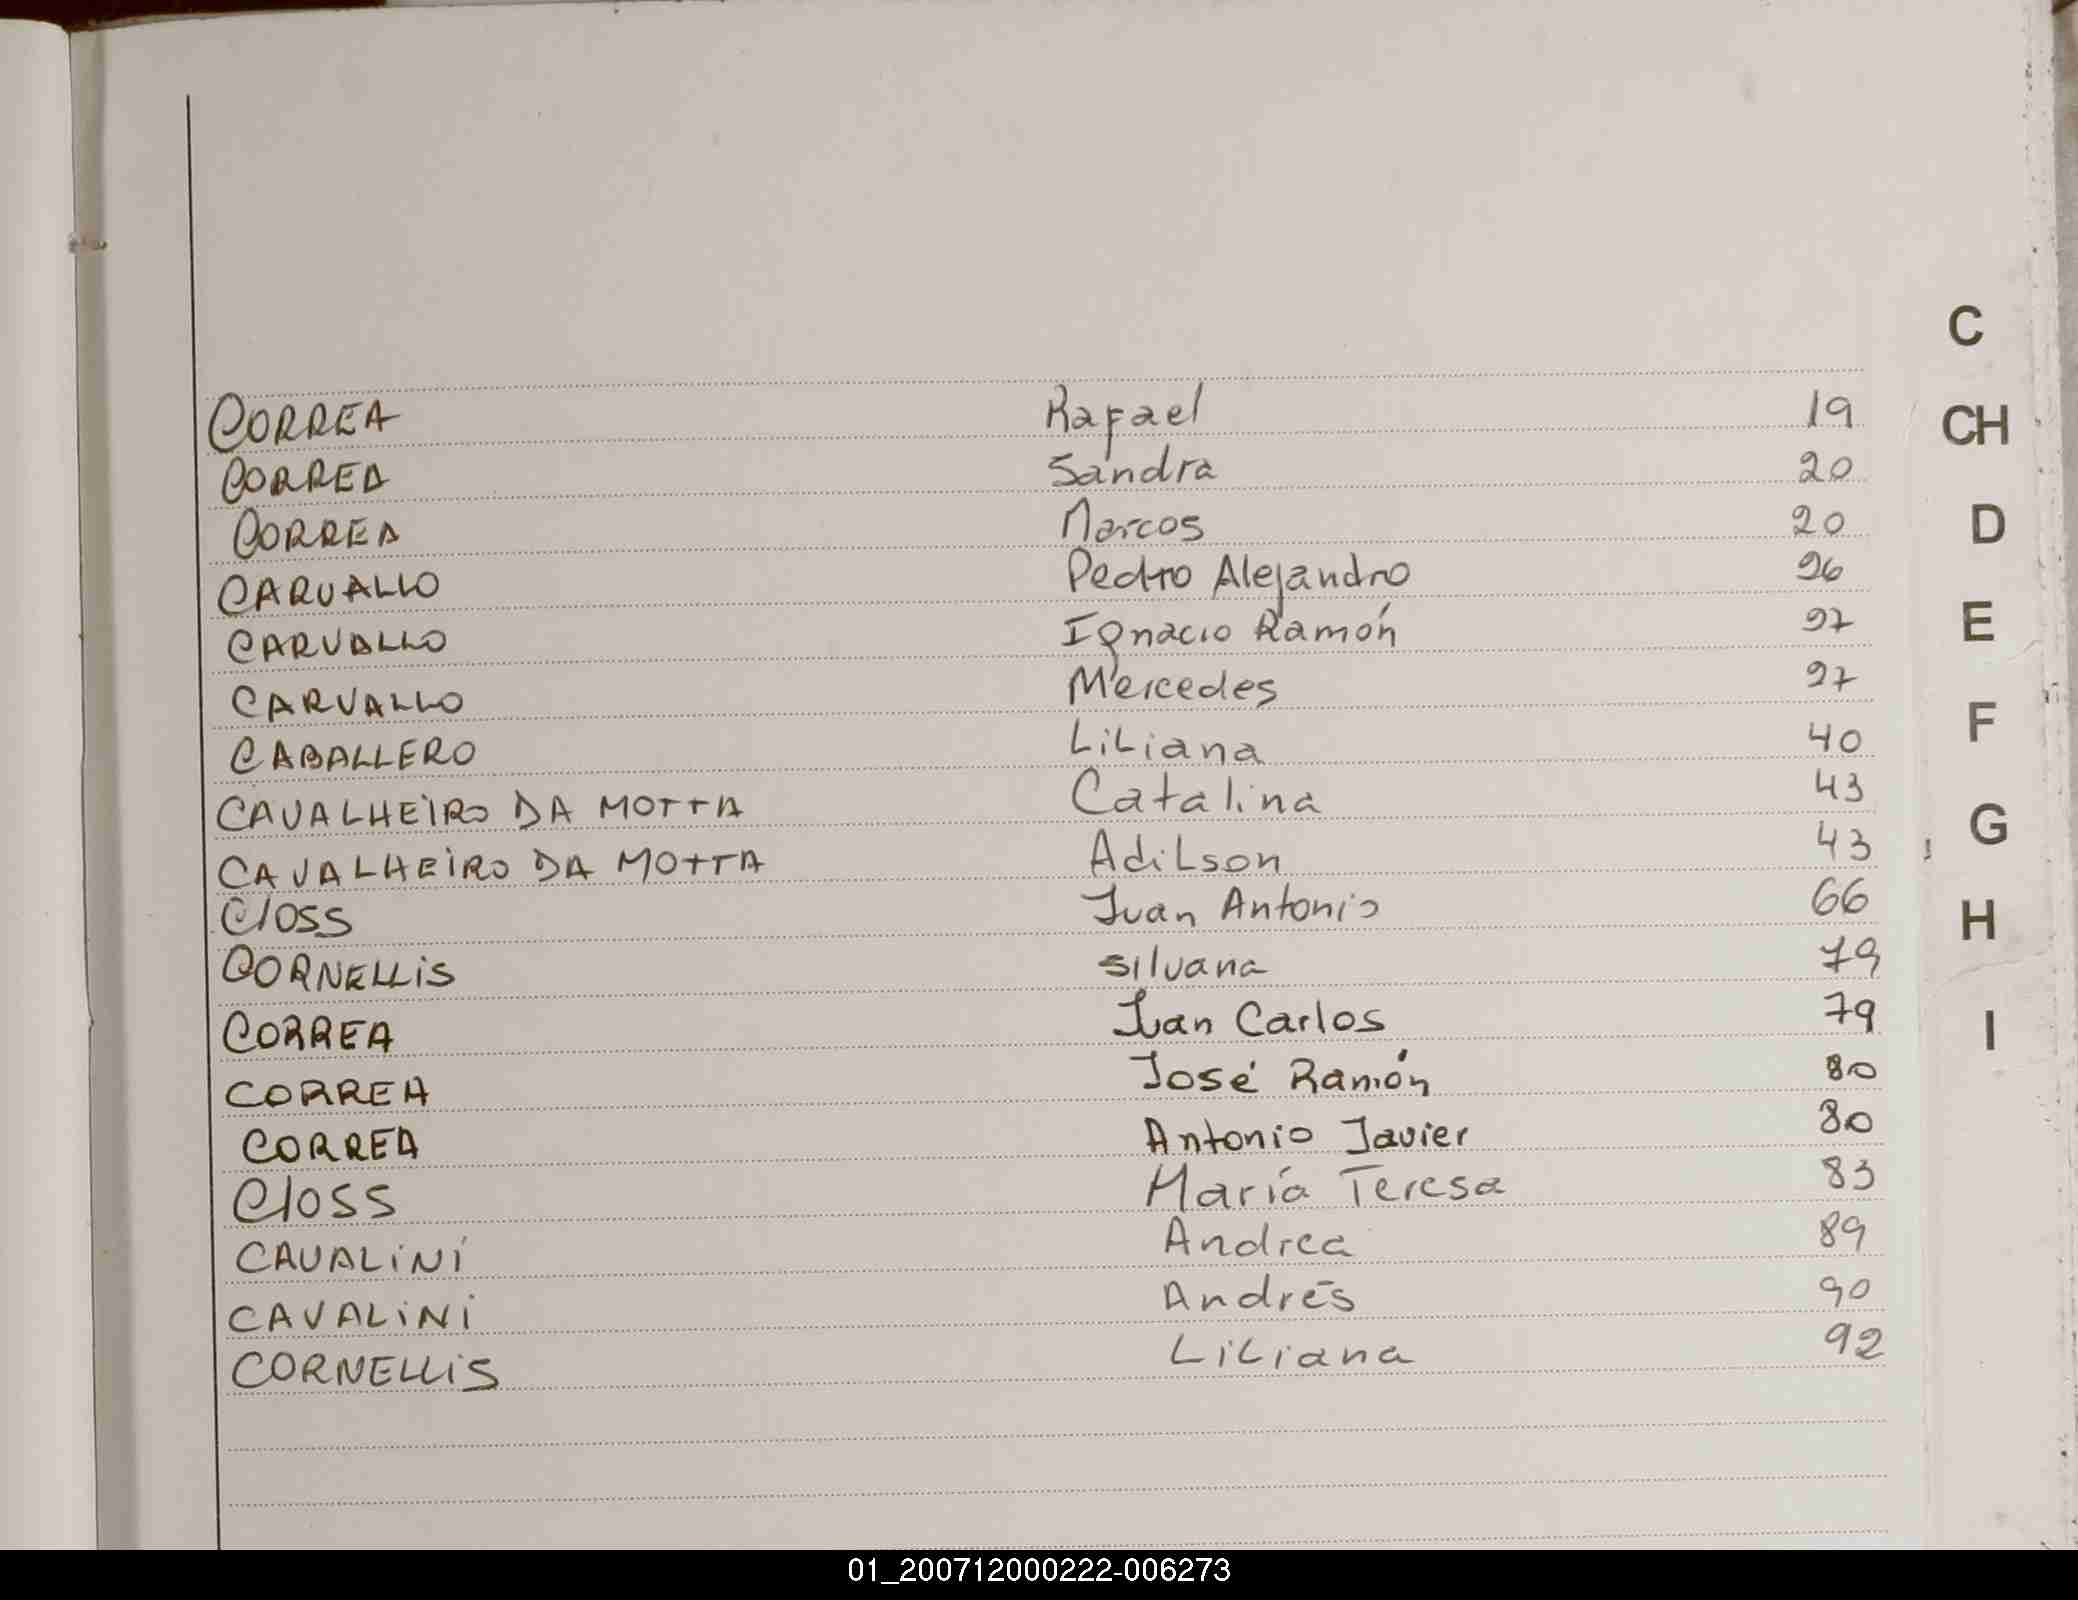 CORREA Rafael 19
CORREA Sandra 20
CORREA Marcos 20
CARVALLO Pedro Alejandro 26
CARVALLO Ignacio Ramón 27
CARVALLO Mercedes 27
CABALLERO Liliana 40
CAVALHEIRO DA MOTTA Catalina 43
CAVALHEIRO DA MOTTA Adilson 43
Closs Juan Antonio 66
CORNELLIS Silvana 79
CORREA Juan Carlos 79
CORREA José Ramón 80
CORREA Antonio Javier 80
Closs María Teresa 83
CAVALINI Andrea 89
CAVALINI Andrés 90
CORNELLIS Liliana 92
C
CH
D
E
F
G
H
I
01_200712000222-006273